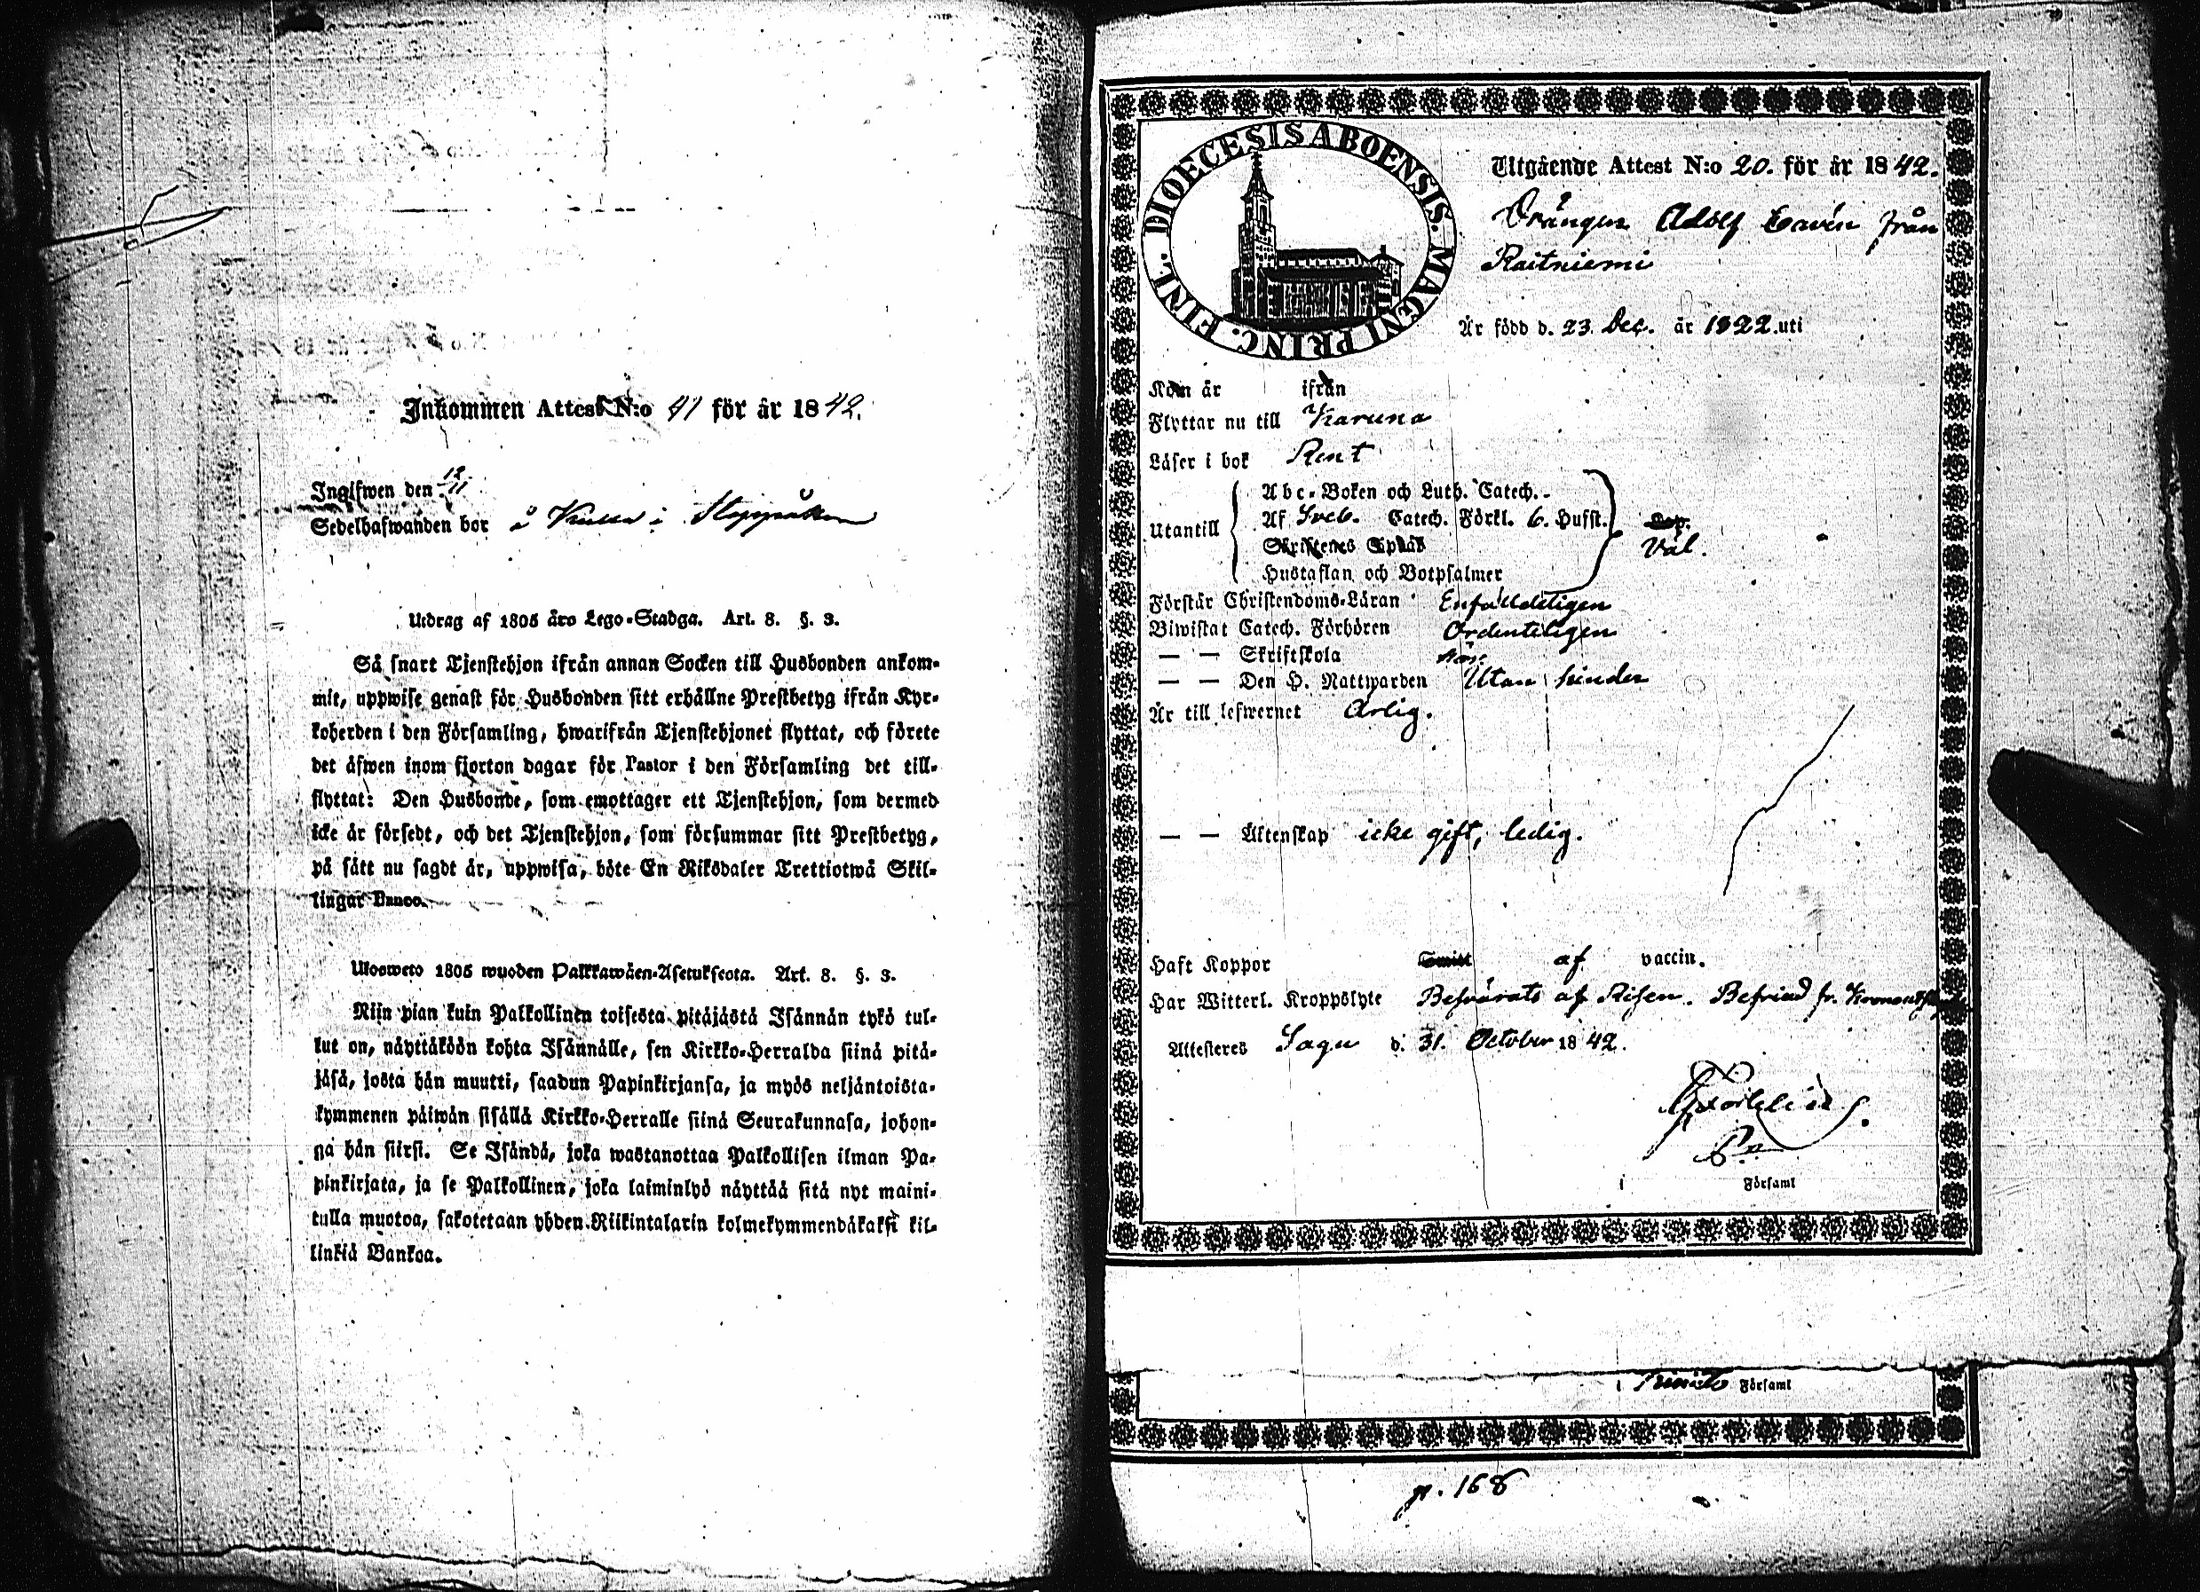 Inkommen Attest N:o 41 för år 1842.
Ingifwen den 12/11
Sedelhafwanden bor å i
Utdrag af 1805 års Lego-Stadga. Art. 8. §. 3.
Så snart Tjenstehjon ifrån annan Socken till Husbonden ankom-
mit, uppwise genast för Husbonden sitt erhållne Prestbetyg ifrån Kyr-
koherden i den Församling, hwarifrån Tjenstehjonet flyttat, och förete
det äfwen inom fjorton dagar för Pastor i den Församling det till-
flyttat: Den Husbonde, som emottager ett Tjenstehjon, som dermed
icke är försedt, och det Tjenstehjon, som försummar sitt Prestbetyg,
på sätt nu sagdt är, uppwisa, böte En Riksdaler Trettiotwå Skil-
lingar Banco.
Ulosweto 1805 wuoden Palkkawäen-Asetuksesta. Art. 8. §. 3.
Niin pian kuin Palkollinen toisesta pitäjästä Isännän tykö tul-
lut on, näyttäköön kohta Isännälle, sen Kirkko-Herralda siinä pitä-
jäsä, josta hän muutti, saadun Papinkirjansa, ja myös neljäntoista-
kymmenen päiwän sisällä Kirkko-Herralle siinä Seurakunnasa, johon-
ga hän siirsi. Se Isändä, joka wastanottaa Palkollisen ilman Pa-
pinkirjata, ja se Palkollinen, joka laiminlyö näyttää sitä nyt maini-
tulla muotoa, sakotetaan yhden Riikintalarin kolmekymmendäkaksi kil-
linkiä Bankoa.
DIOECESIS ABOENSIS. MAGNI PRINC. FINL.
Utgående Attest N:o 20. för år 1842.
Drängen Adolf från
Raitniemi
Är född d. 23. Dec. år 1822. uti
Kom år ifrån
Flyttar nu till Karuna
Läser i bok Rent
Utantill
Abc-Boken och Luth. Catech.
Af Sveb. Catech. Förkl. 6. Hufst.
Skriftenes Språk
Hustaflan och Botpsalmer
Väl.
Förstår Christendoms-Läran Enfalldeligen
Biwistat Catech. Förhören Ordenteligen
— — Skriftskola
— — Den H. Nattwarden Utan hinder
Är till lefwernet Ärlig.
— — Äktenskap icke gift, ledig.
Haft Koppor af vaccin.
Har Witterl. Kroppslyte Besvärats af Risen. Befriad fr.
Attesteres Sagu d. 31. October 1842.
i Församl
i Församl
p. 168